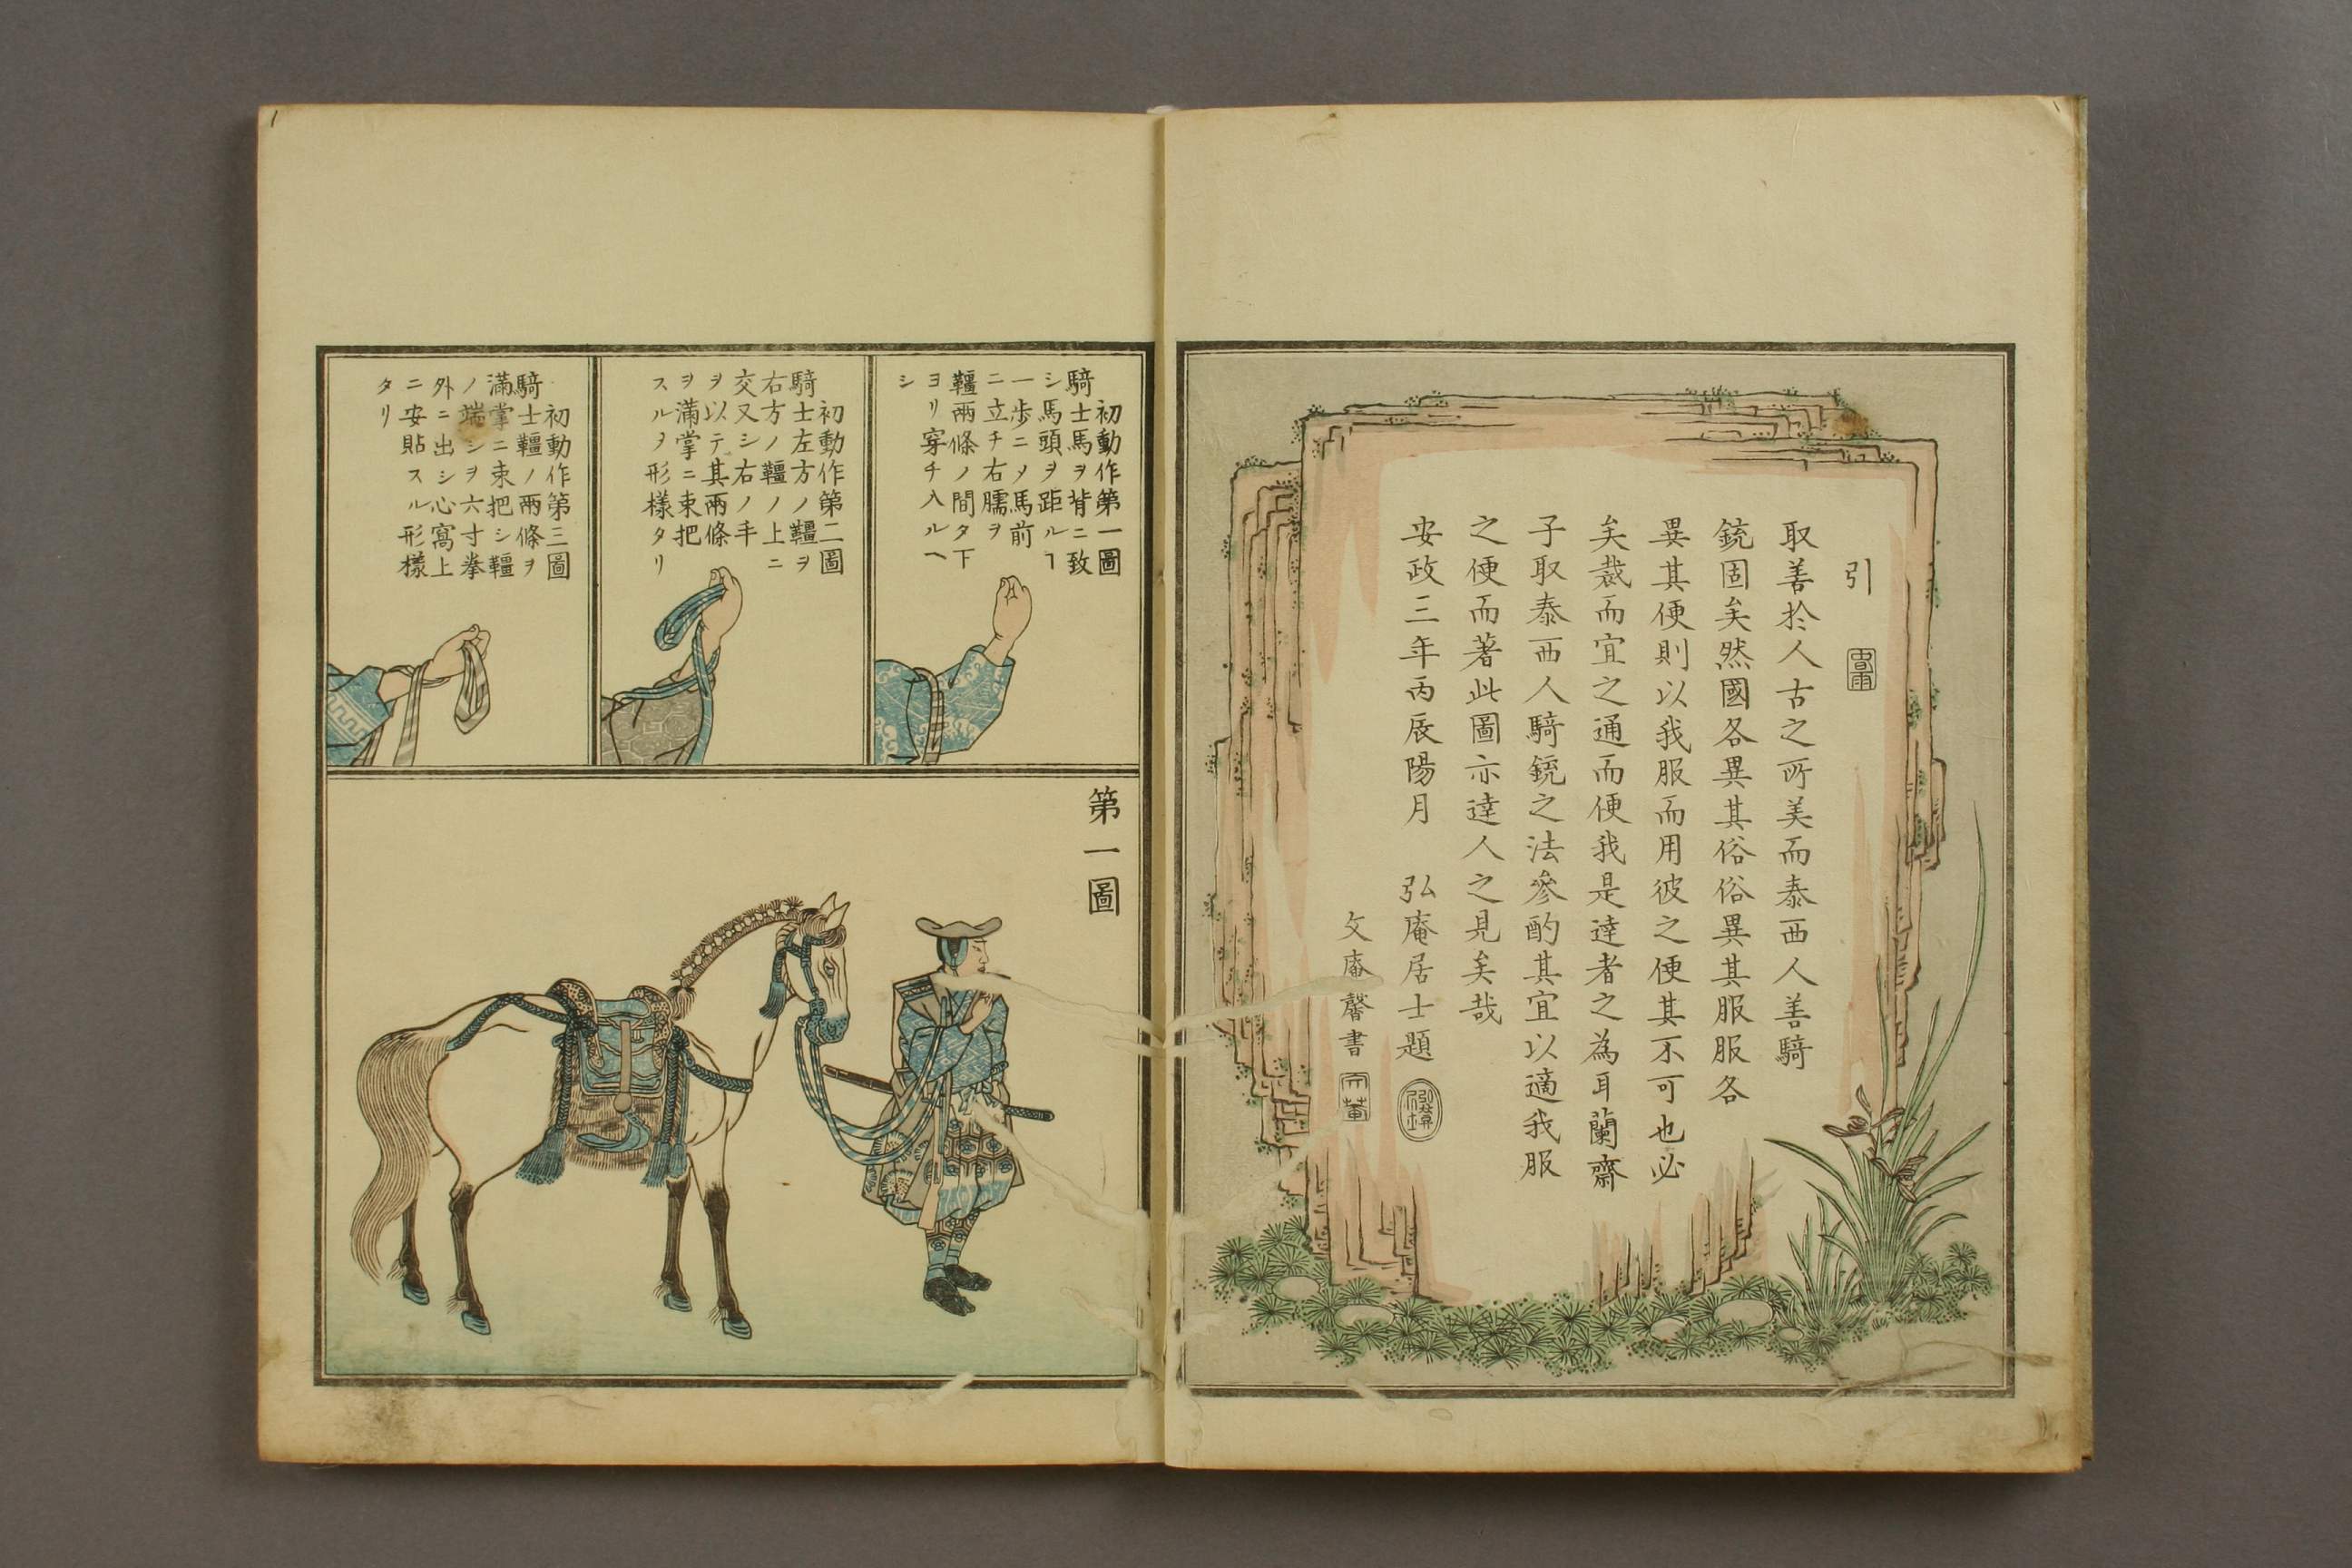 引
取善於人古之所美而泰西人善騎
銃固矣然國各異其俗俗異其服服各
異其便則以我服而用彼之便其不可也必
矣裁而宜之通而便我是達者之為耳蘭齋
子取泰西人騎銃之法參酌其宜以適我服
之便而著此圖亦達人之見矣哉
安政三年丙辰陽月 弘庵居士題
文庵馨書
初動作第一圖
騎士馬ヲ背ニ致
シ馬頭ヲ距ルヿ
一歩ニメ馬前
ニ立チ右臑ヲ
韁兩條ノ間タ下
ヨリ穿チ入ルヘ
シ
初動作第二圖
騎士左方ノ韁ヲ
右方ノ韁ノ上ニ
交叉シ右ノ手
ヲ以テ其兩條
ヲ滿掌ニ束把
スルノ形様タリ
初動作第三圖
騎士韁ノ兩條ヲ
滿掌ニ束把シ韁
ノ端シヲ六寸拳
外ニ出シ心窩上
ニ安貼スル形様
タリ
第一圖